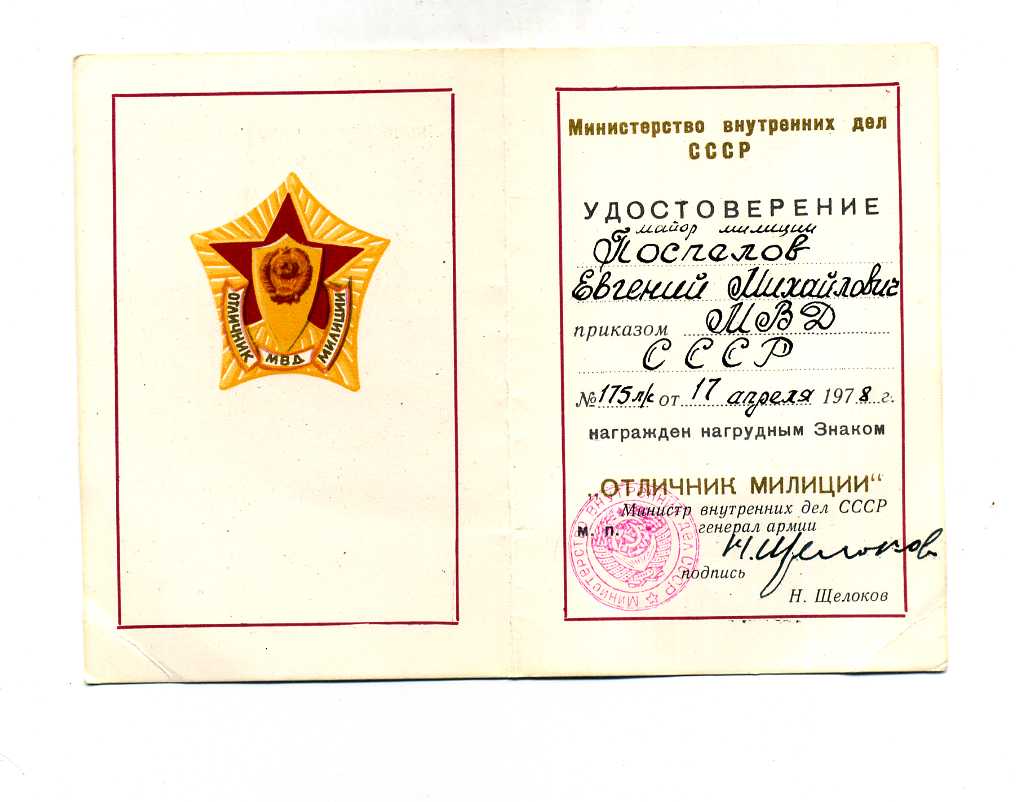 ОТЛИЧНИК
МВД
МИЛИЦИИ
Министерство внутренних дел
СССР
УДОСТОВЕРЕНИЕ
майор милиции
Поспелов
Евгений Михайлович
приказом МВД
СССР
№ 175 л/с от 17 апреля 1978 г.
награжден нагрудным Знаком
„ОТЛИЧНИК МИЛИЦИИ“
Министр внутренних дел СССР
м. п. генерал армии
Н. Щелоков
подпись
Н. Щелоков
Министерство внутренних дел СССР